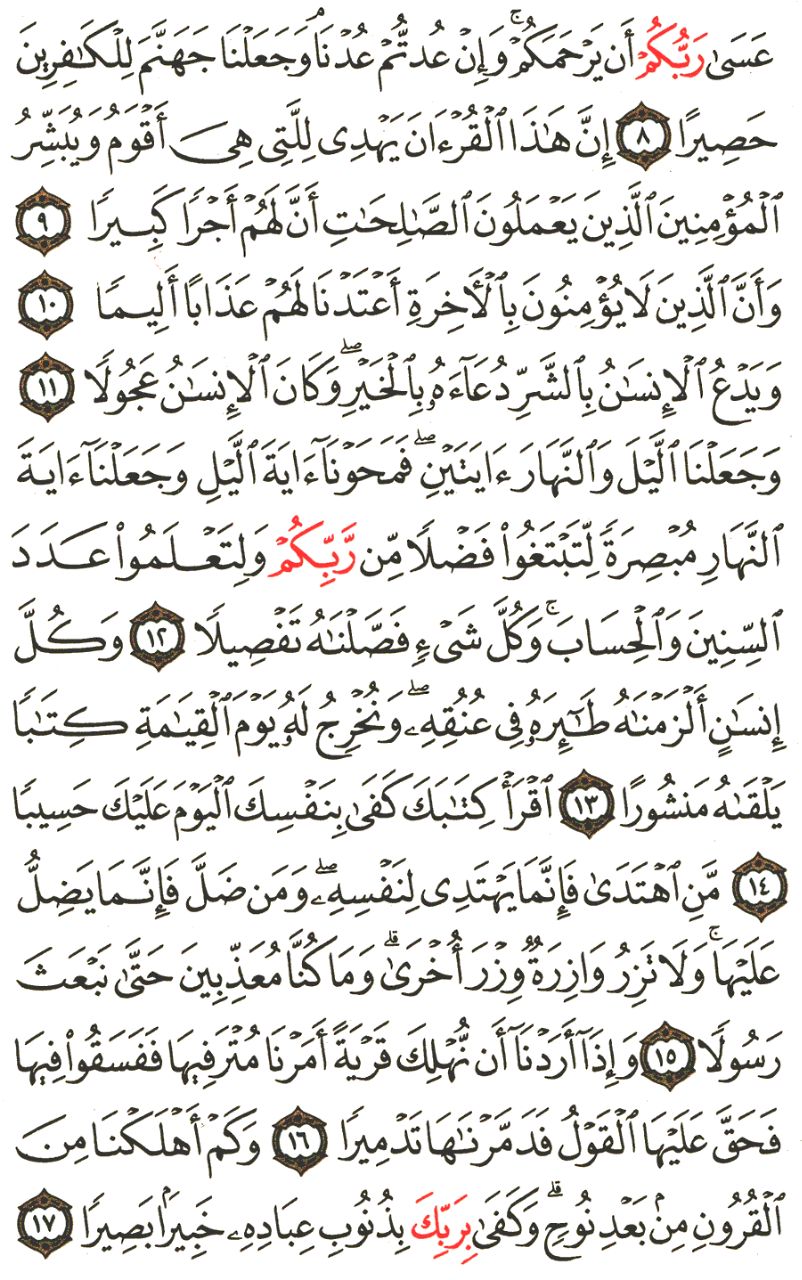 عَسَىٰ رَبُّكُمْ أَن يَرْحَمَكُمْ ۚ وَإِنْ عُدتُّمْ عُدْنَا ۘ وَجَعَلْنَا جَهَنَّمَ لِلْكَـٰفِرِينَ
حَصِيرًا ٨ إِنَّ هَـٰذَا ٱلْقُرْءَانَ يَهْدِى لِلَّتِى هِىَ أَقْوَمُ وَيُبَشِّرُ
ٱلْمُؤْمِنِينَ ٱلَّذِينَ يَعْمَلُونَ ٱلصَّـٰلِحَـٰتِ أَنَّ لَهُمْ أَجْرًا كَبِيرًا ٩
وَأَنَّ ٱلَّذِينَ لَا يُؤْمِنُونَ بِٱلْـَٔاخِرَةِ أَعْتَدْنَا لَهُمْ عَذَابًا أَلِيمًا ١٠
وَيَدْعُ ٱلْإِنسَـٰنُ بِٱلشَّرِّ دُعَآءَهُۥ بِٱلْخَيْرِ ۖ وَكَانَ ٱلْإِنسَـٰنُ عَجُولًا ١١
وَجَعَلْنَا ٱلَّيْلَ وَٱلنَّهَارَ ءَايَتَيْنِ ۖ فَمَحَوْنَآ ءَايَةَ ٱلَّيْلِ وَجَعَلْنَآ ءَايَةَ
ٱلنَّهَارِ مُبْصِرَةً لِّتَبْتَغُوا۟ فَضْلًا مِّن رَّبِّكُمْ وَلِتَعْلَمُوا۟ عَدَدَ
ٱلسِّنِينَ وَٱلْحِسَابَ ۚ وَكُلَّ شَىْءٍ فَصَّلْنَـٰهُ تَفْصِيلًا ١٢ وَكُلَّ
إِنسَـٰنٍ أَلْزَمْنَـٰهُ طَـٰٓئِرَهُۥ فِى عُنُقِهِۦ ۖ وَنُخْرِجُ لَهُۥ يَوْمَ ٱلْقِيَـٰمَةِ كِتَـٰبًا
يَلْقَىٰهُ مَنشُورًا ١٣ ٱقْرَأْ كِتَـٰبَكَ كَفَىٰ بِنَفْسِكَ ٱلْيَوْمَ عَلَيْكَ حَسِيبًا
١٤ مَّنِ ٱهْتَدَىٰ فَإِنَّمَا يَهْتَدِى لِنَفْسِهِۦ ۖ وَمَن ضَلَّ فَإِنَّمَا يَضِلُّ
عَلَيْهَا ۚ وَلَا تَزِرُ وَازِرَةٌ وِزْرَ أُخْرَىٰ ۗ وَمَا كُنَّا مُعَذِّبِينَ حَتَّىٰ نَبْعَثَ
رَسُولًا ١٥ وَإِذَآ أَرَدْنَآ أَن نُّهْلِكَ قَرْيَةً أَمَرْنَا مُتْرَفِيهَا فَفَسَقُوا۟ فِيهَا
فَحَقَّ عَلَيْهَا ٱلْقَوْلُ فَدَمَّرْنَـٰهَا تَدْمِيرًا ١٦ وَكَمْ أَهْلَكْنَا مِنَ
ٱلْقُرُونِ مِنۢ بَعْدِ نُوحٍ ۗ وَكَفَىٰ بِرَبِّكَ بِذُنُوبِ عِبَادِهِۦ خَبِيرًۢا بَصِيرًا ١٧